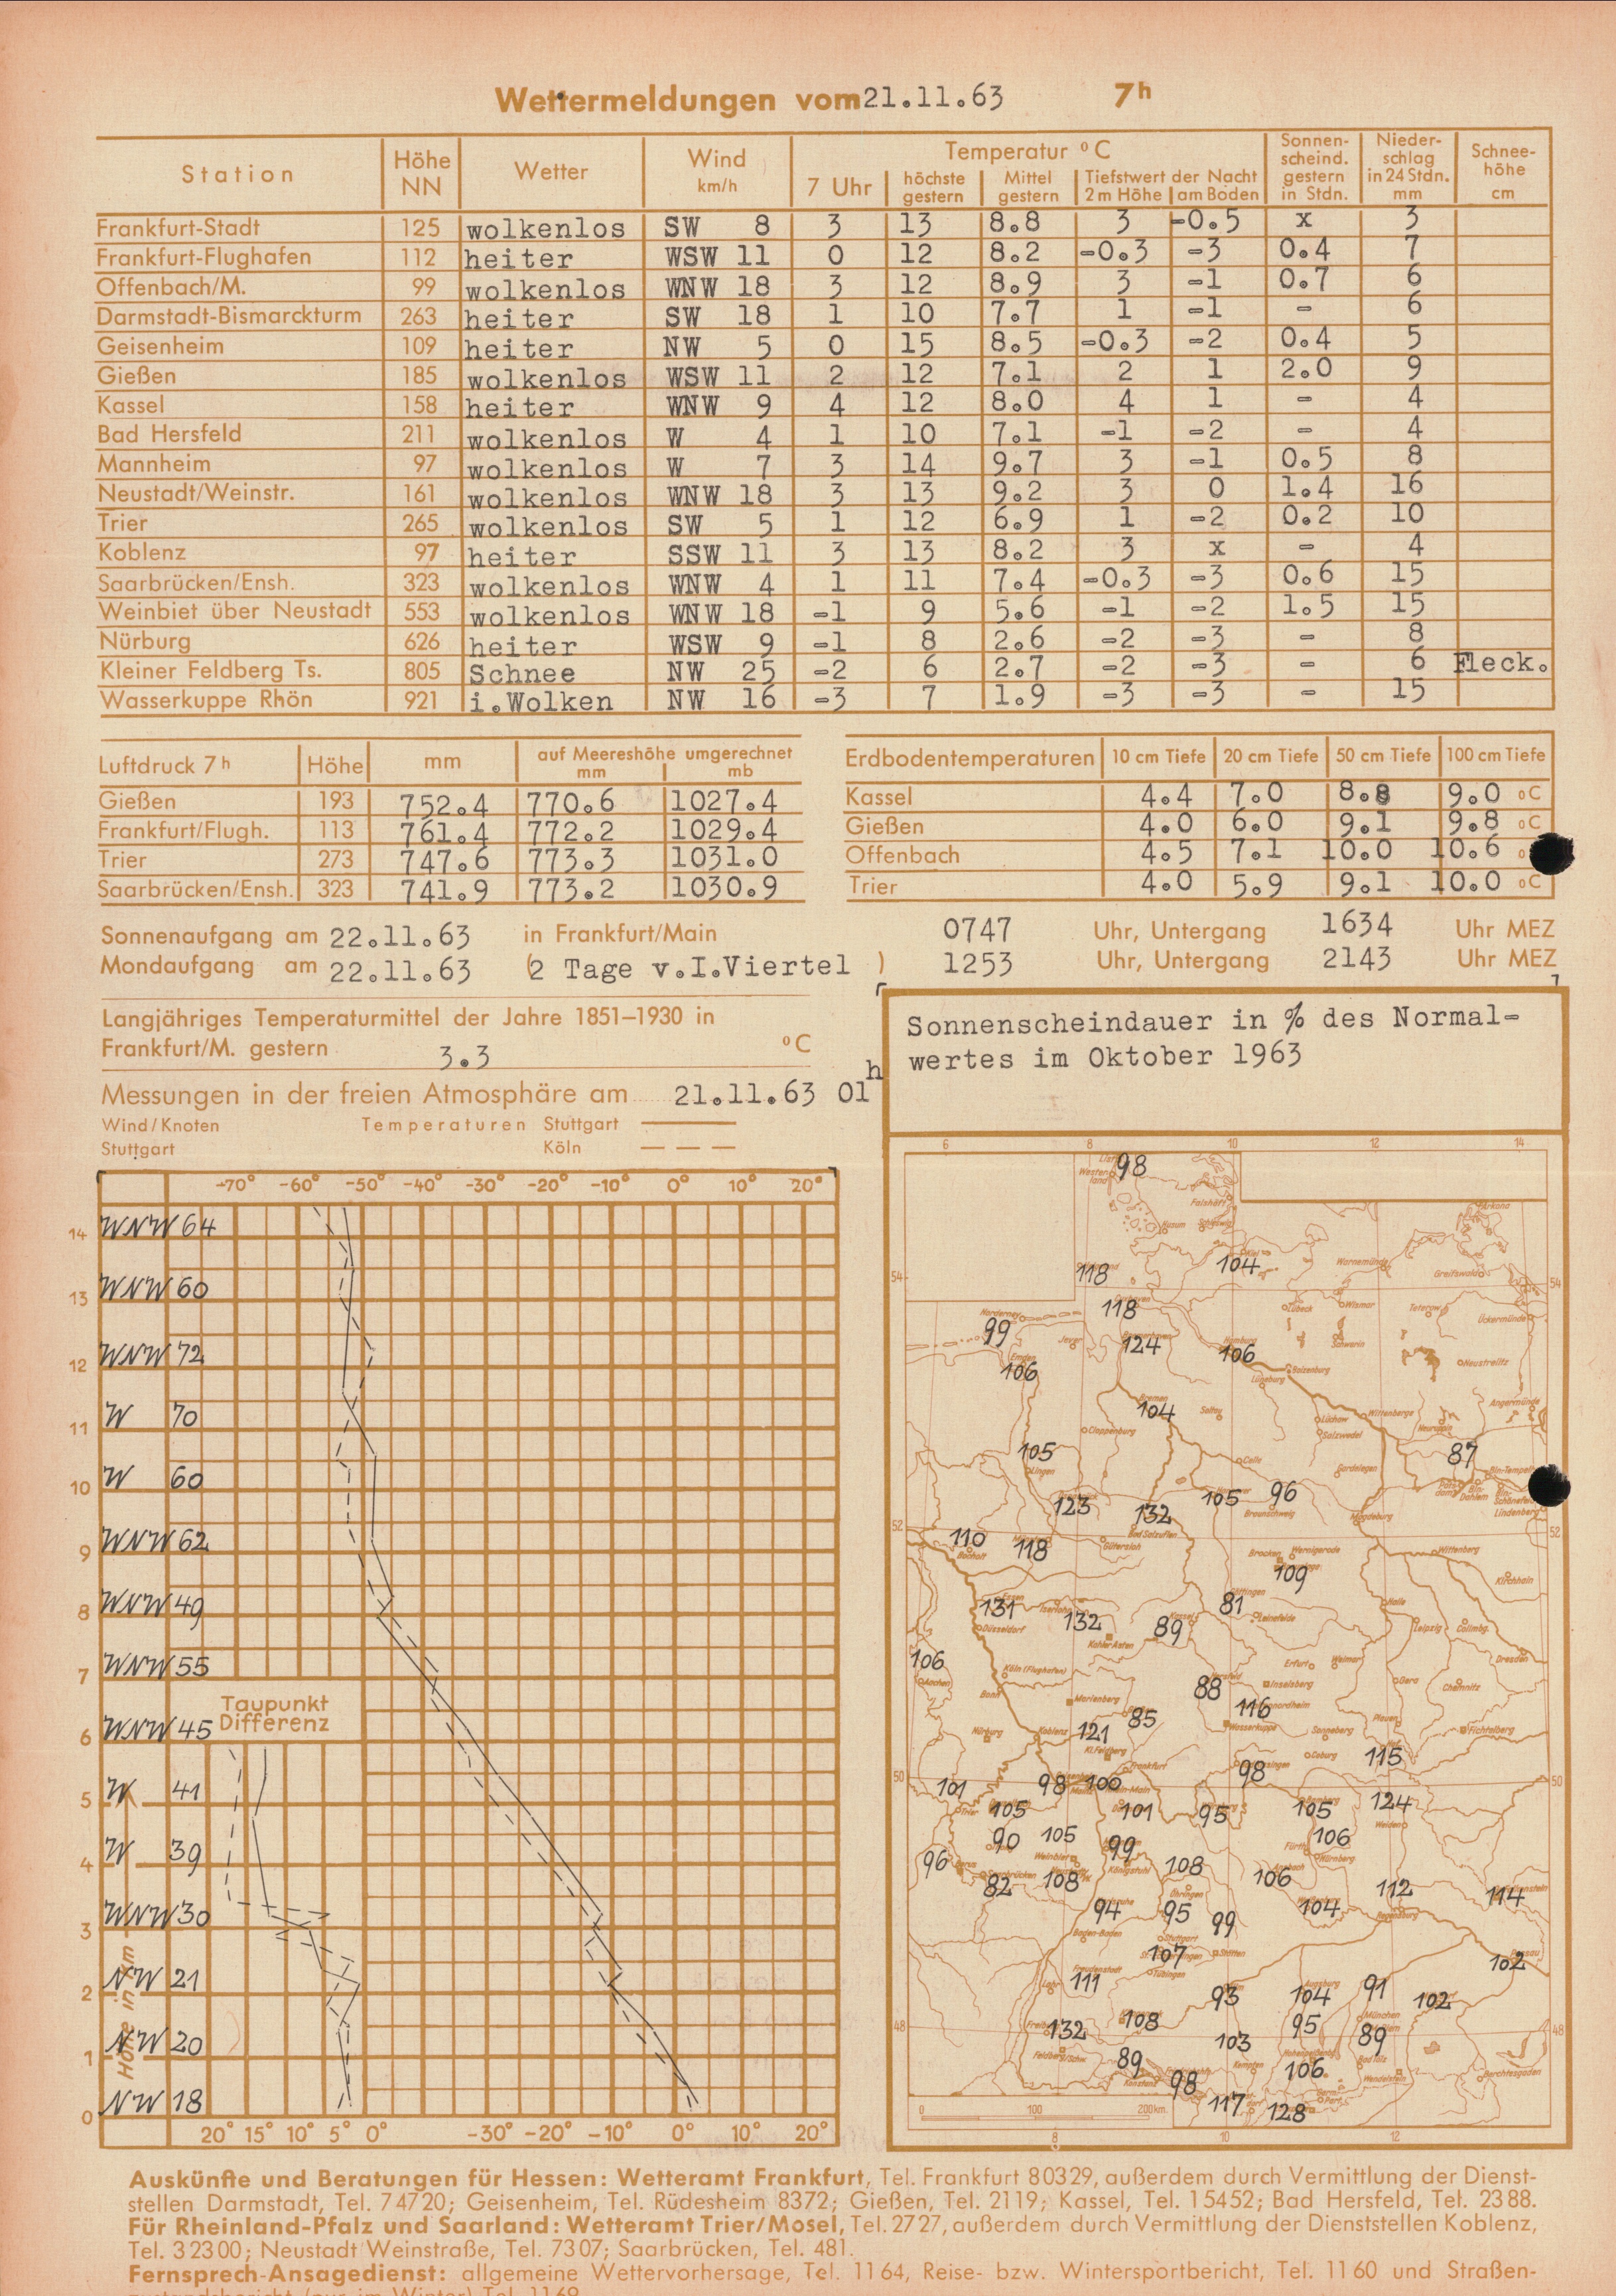 Wettermeldungen vom 21.11.63 7h
Station Höhe NN Wetter Wind km/h Temperatur °C Sonnenscheind. gestern in Stdn. Niederschlag in 24 Stdn. mm Schneehöhe cm
7 Uhr höchste gestern Mittel gestern Tiefstwert der Nacht 2 m Höhe am Boden
Frankfurt-Stadt 125 wolkenlos SW 8 3 13 8.8 3 -0.5 x 3
Frankfurt-Flughafen 112 heiter WSW 11 0 12 8.2 -0.3 -3 0.4 7
Offenbach/M. 99 wolkenlos WNW 18 3 12 8.9 3 -1 0.7 6
Darmstadt-Bismarckturm 263 heiter SW 18 1 10 7.7 1 -1 - 6
Geisenheim 109 heiter NW 5 0 15 8.5 -0.3 -2 0.4 5
Gießen 185 wolkenlos WSW 11 2 12 7.1 2 1 2.0 9
Kassel 158 heiter WNW 9 4 12 8.0 4 1 - 4
Bad Hersfeld 211 wolkenlos W 4 1 10 7.1 -1 -2 - 4
Mannheim 97 wolkenlos W 7 3 14 9.7 3 -1 0.5 8
Neustadt/Weinstr. 161 wolkenlos WNW 18 3 13 9.2 3 0 1.4 16
Trier 265 wolkenlos SW 5 1 12 6.9 1 -2 0.2 10
Koblenz 97 heiter SSW 11 3 13 8.2 3 x - 4
Saarbrücken/Ensh. 323 wolkenlos WNW 4 1 11 7.4 -0.3 -3 0.6 15
Weinbiet über Neustadt 553 wolkenlos WNW 18 -1 9 5.6 -1 -2 1.5 15
Nürburg 626 heiter WSW 9 -1 8 2.6 -2 -3 - 8
Kleiner Feldberg Ts. 805 Schnee NW 25 -2 6 2.7 -2 -3 - 6 Fleck.
Wasserkuppe Rhön 921 i.Wolken NW 16 -3 7 1.9 -3 -3 - 15
Luftdruck 7h Höhe mm auf Meereshöhe umgerechnet mm mb
Gießen 193 752.4 770.6 1027.4
Frankfurt/Flugh. 113 761.4 772.2 1029.4
Trier 273 747.6 773.3 1031.0
Saarbrücken/Ensh. 323 741.9 773.2 1030.9
Erdbodentemperaturen 10 cm Tiefe 20 cm Tiefe 50 cm Tiefe 100 cm Tiefe
Kassel 4.4 7.0 8.8 9.0 °C
Gießen 4.0 6.0 9.1 9.8 °C
Offenbach 4.5 7.1 10.0 10.6
Trier 4.0 5.9 9.1 10.0 °C
Sonnenaufgang am 22.11.63 in Frankfurt/Main 0747 Uhr, Untergang 1634 Uhr MEZ
Mondaufgang am 22.11.63 (2 Tage v.I.Viertel ) 1253 Uhr, Untergang 2143 Uhr MEZ
Langjähriges Temperaturmittel der Jahre 1851–1930 in
Frankfurt/M. gestern 3.3 °C
Messungen in der freien Atmosphäre am 21.11.63 01h
Wind/Knoten Temperaturen Stuttgart
Stuttgart Köln
-70° -60° -50° -40° -30° -20° -10° 0° 10° 20°
14 WNW 64
13 WNW 60
12 WNW 72
11 W 70
10 W 60
9 WNW 62
8 WNW 49
7 WNW 55
Taupunkt
Differenz
6 WNW 45
5 W 41
4 W 39
3 WNW 30
2 NW 21
1 NW 20
0 NW 18
Höhe in km
20° 15° 10° 5° 0° -30° -20° -10° 0° 10° 20°
Sonnenscheindauer in % des Normal-
wertes im Oktober 1963
6 8 10 12 14
98
118 104
118
99 124 106
106
104
105 87
123 132 105 96
110 118
109
131 132 89 81
106
88 116
121 85
115
101 98 100 98
105 101 95 105 124
90 105 99 106
96 82 108 108 106
94 95 99 104 112 114
107
111 102
93 104 91 102
132 108 95 89
103
89 106
98 117 128
0 100 200km
8 10 12
Auskünfte und Beratungen für Hessen: Wetteramt Frankfurt, Tel. Frankfurt 80329, außerdem durch Vermittlung der Dienst-
stellen Darmstadt, Tel. 74720; Geisenheim, Tel. Rüdesheim 8372; Gießen, Tel. 2119; Kassel, Tel. 15452; Bad Hersfeld, Tel. 2388.
Für Rheinland-Pfalz und Saarland: Wetteramt Trier/Mosel, Tel. 2727, außerdem durch Vermittlung der Dienststellen Koblenz,
Tel. 32300; Neustadt Weinstraße, Tel. 7307; Saarbrücken, Tel. 481.
Fernsprech-Ansagedienst: allgemeine Wettervorhersage, Tel. 1164, Reise- bzw. Wintersportbericht, Tel. 1160 und Straßen-